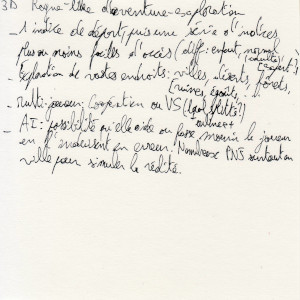 3D Rogue-like d'aventure-exploration
- 1 indice de départ, puis une série d'indices,
plus ou moins faciles d'accès (diff: enfant, normal
(adulte), expert).
- Exploration de vastes endroits: villes, déserts, forêts,
(ruines, égouts,
- multi-joueur: Coopération ou VS (local
online++
- AI: possibilité qu'elle aide ou fasse mourir le joueur
en l' en erreur. Nombreux PNJ surtout en
ville pour simuler la réalité.